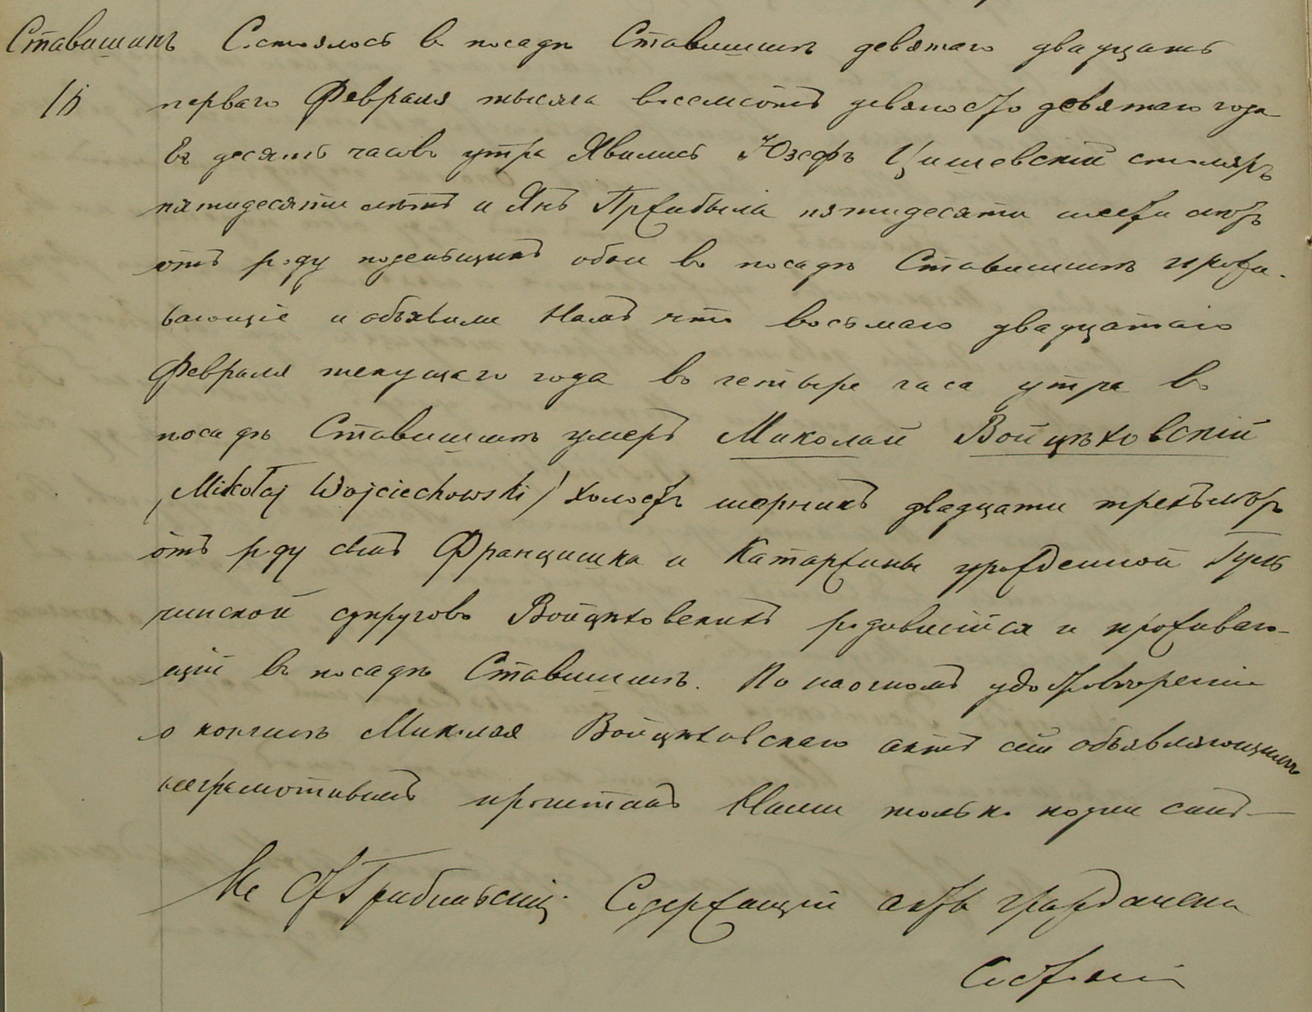 Ставишинъ Состоялось в посадѣ Ставишинѣ девятаго двадцать
15 перваго Февраля тысяча восемьсотъ девяносто девятаго года
въ десять часовъ утра Явились Юзефъ Цишевскій столяръ
пятидесяти лѣтъ и Янъ Пржибыла пятидесяти шести лѣтъ
отъ роду поденьщикъ обои во посадѣ Ставишинѣ прожи-
вающіе и объявили Намъ что восьмаго двадцатаго
Февраля текущаго года во четыре часа утра во
посадѣ Ставишинѣ умеръ Миколай Войцѣховскій
/Mikołaj Wojciechowski/ холостъ шорникъ двадцати трехъ лѣтъ
отъ роду сынъ Францишка и Катаржины урожденной Гуль
чинской супруговъ Войцѣховскихъ родившійся и проживаю-
щій въ посадѣ Ставишинѣ. По наочномъ удостовѣреніи
о кончинѣ Миколая Войцѣховскаго актъ сій объявляющимъ
неграмотнымъ прочитанъ Нами только подписанъ
Содержащій акты гражданска
Состоянія